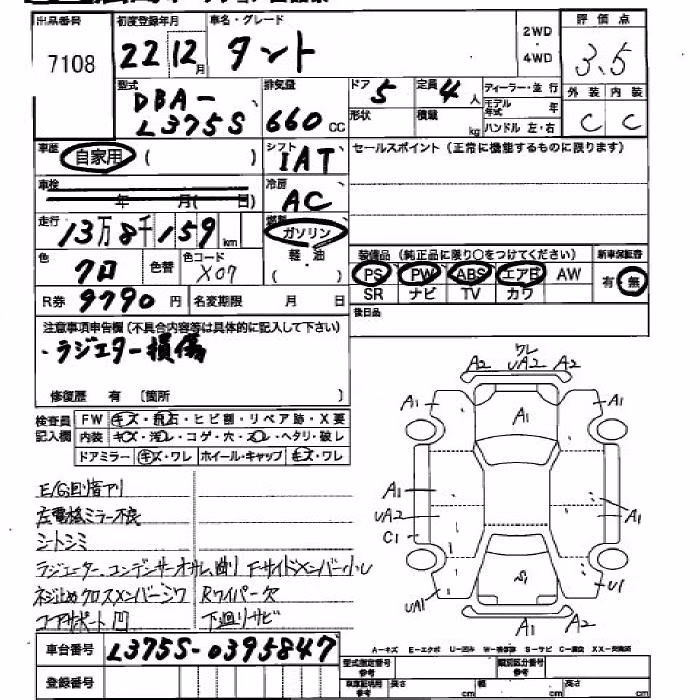 出品番号 初度登録年月 車名・グレード 2WD・4WD 評価点
7108 22 12月 タント 3.5
型式 DBA-L375S 排気量 660cc ドア 5 定員 4人 ディーラー・並行
形状 積載 kg モデル年式 年 ハンドル 左・右 外装 C 内装 C
車歴 自家用 ( ) シフト IAT セールスポイント(正常に機能するものに限ります)
車検 年 月( 日) 冷房 AC
走行 13万8千159km 燃料 ガソリン
色 クロ 色替 色コード X07 軽・油 ( )
装備品(純正品に限り○をつけてください) 新車保証書
PS PW ABS エアB AW 有・無
SR ナビ TV カワ
R券 9790円 名変期限 月 日
後日品
注意事項申告欄(不具合内容等は具体的に記入して下さい)
・ラジエター損傷
修復歴 有 〔箇所 〕
検査員記入欄 FW キズ・飛石・ヒビ割・リペア跡・X要
内装 キズ・汚レ・コゲ・穴・スレ・ヘタリ・破レ
ドアミラー キズ・ワレ ホイール・キャップ キズ・ワレ
E/G回り音アリ
左電格ミラー不良
シートシミ
ラジエーター、コンデンサーオサレ、曲り Fサイドメンバー小レ
ネジ止めクロスメンバーシワ Rワイパー欠
コアサポート凹 下廻りサビ
A2 ワレ UA2 A2
A1 A1 A1
A1 UA2 C1 A1
UA1 S1 U1
A1 A1
A−キズ E−エクボ U−凹み W−補修跡 S−サビ C−腐食 XX−交換済
車台番号 L375S-0395847
登録番号
型式指定番号 参考 類別区分番号 参考
車庫証明用 参考 長さ cm 幅 cm 高さ cm